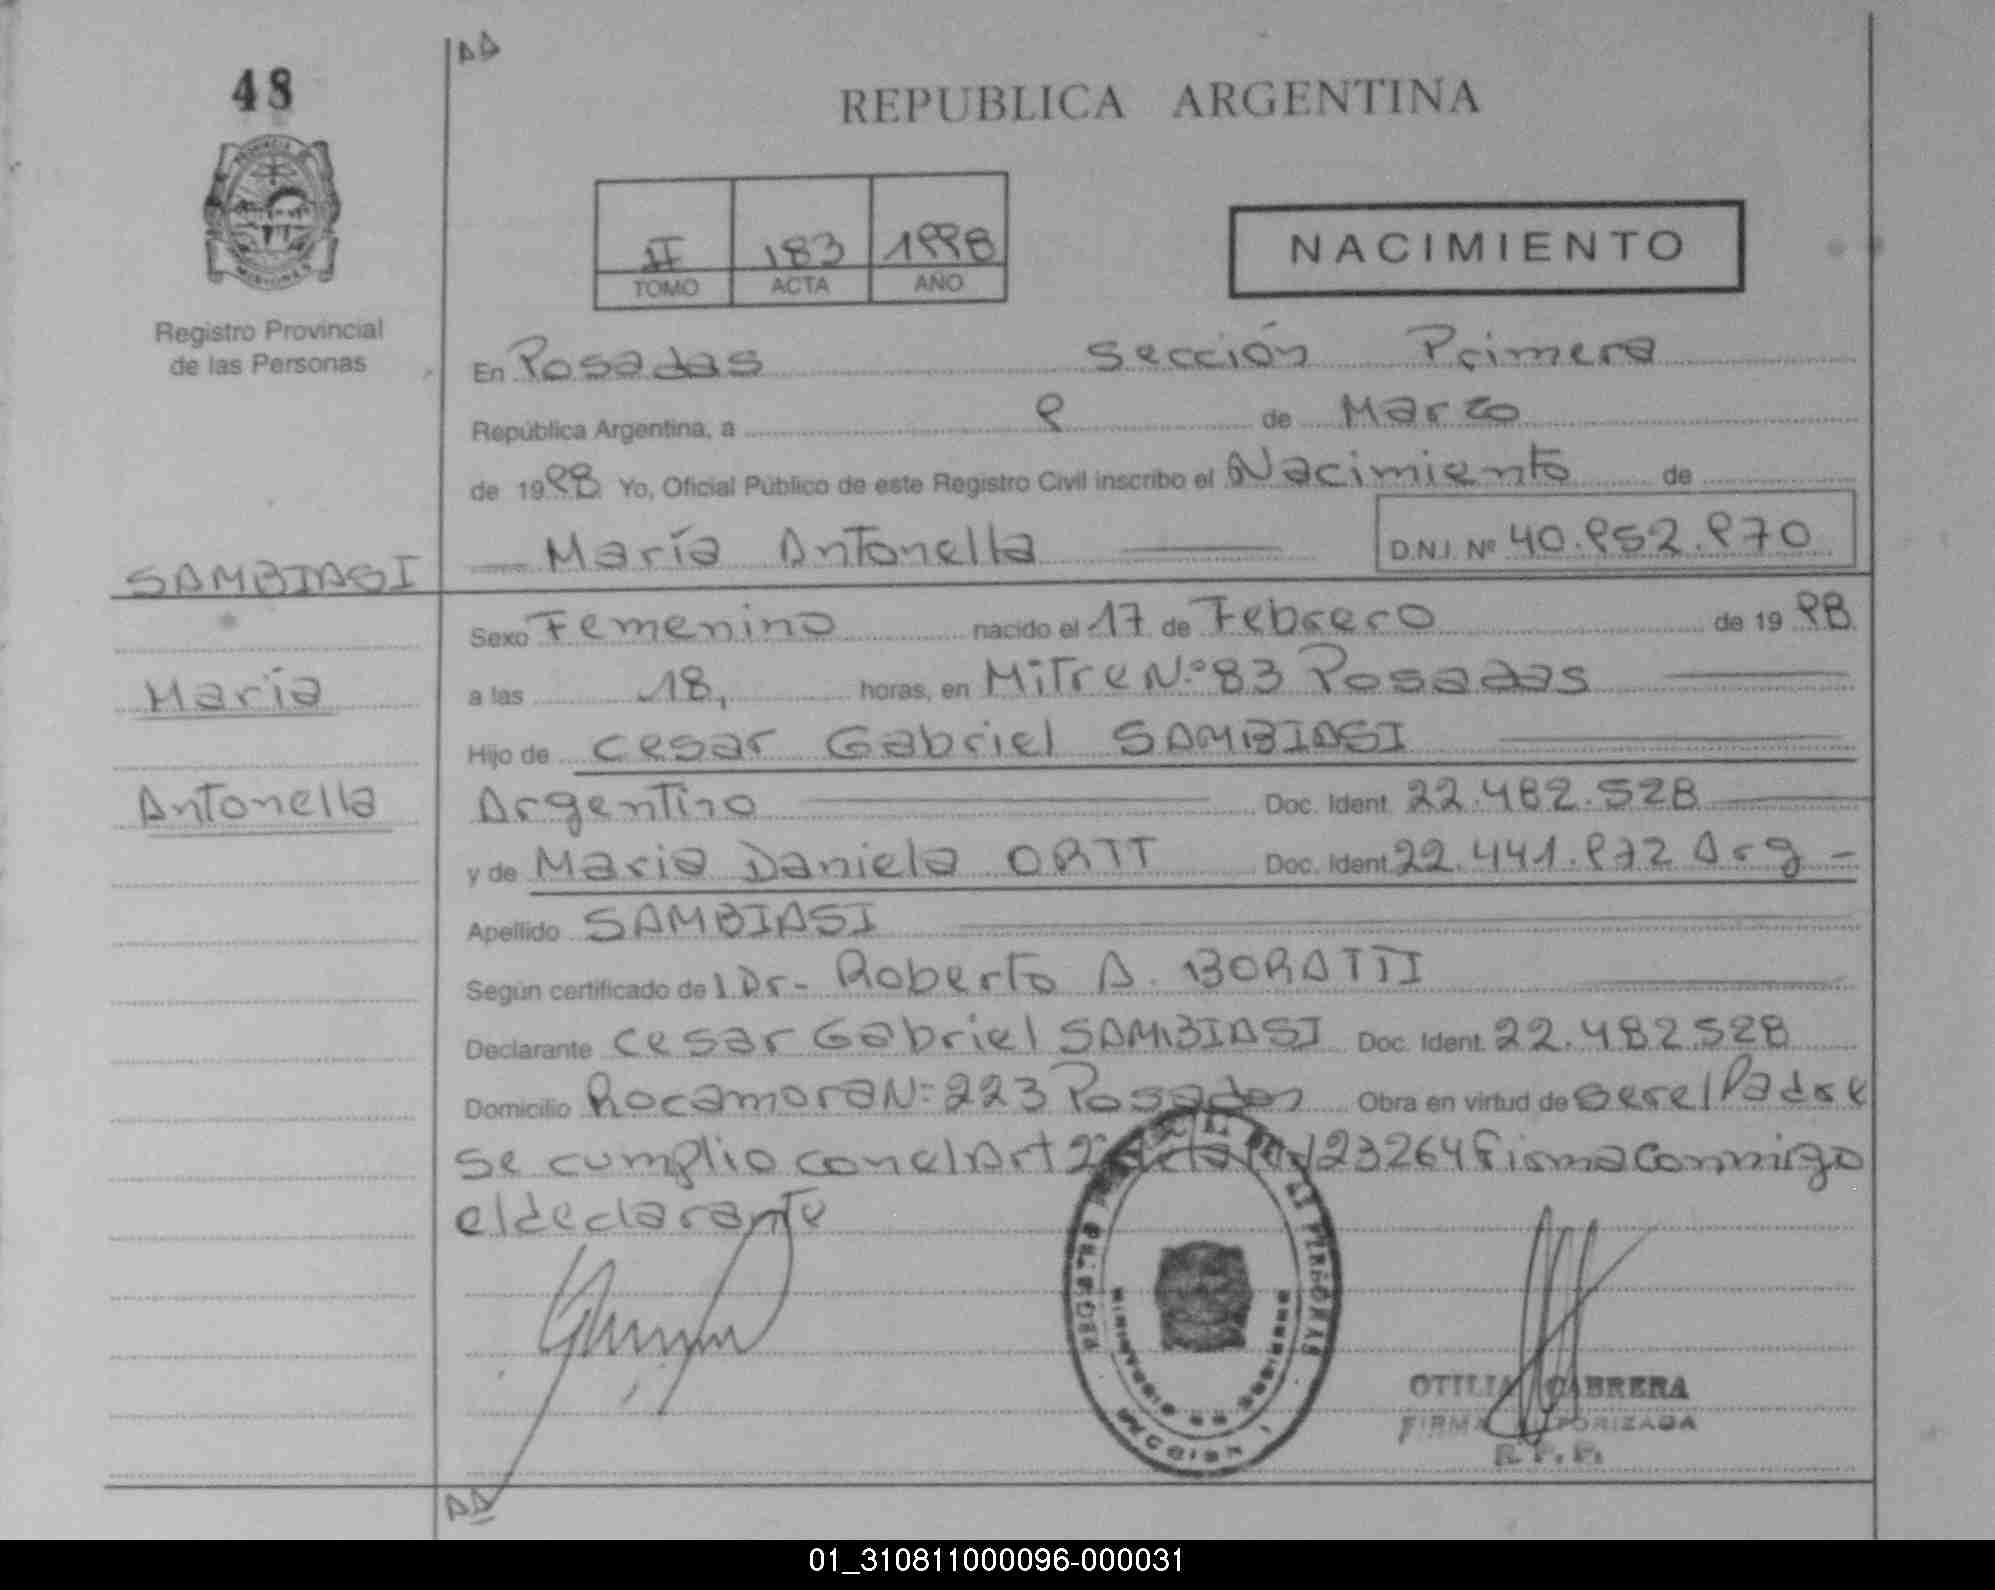 48
REPUBLICA ARGENTINA
II 183 1998
TOMO ACTA AÑO
NACIMIENTO
Registro Provincial
de las Personas
En Posadas Sección Primera
República Argentina, a 9 de Marzo
de 1998 Yo, Oficial Público de este Registro Civil inscribo el Nacimiento de
María Antonella D.N.I. Nº 40.952.970
SAMBIASI
María
Antonella
Sexo Femenino nacido el 17 de Febrero de 1998
a las 18, horas, en Mitre N.º 83 Posadas
Hijo de Cesar Gabriel SAMBIASI
Argentino Doc. Ident. 22.482.528
y de Maria Daniela ORTT Doc. Ident. 22.441.972 Arg
Apellido SAMBIASI
Según certificado de l Dr- Roberto A. BORATTI
Declarante Cesar Gabriel SAMBIASI Doc. Ident. 22.482.528
Domicilio Rocamora Nº 223 Posadas Obra en virtud de ser el Padre
se cumplio con el Art 2º de la ley 23264 firma conmigo
el declarante
MINISTERIO DE GOBIERNO
SECCION 1
OTILIA CABRERA
FIRMA AUTORIZADA
R. P. P.
01_310811000096-000031